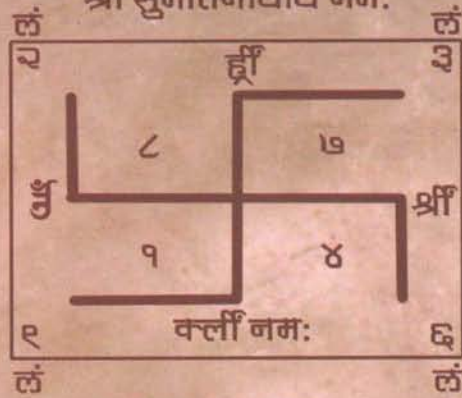 श्री सुमतिनाथाय नम:
लं. लं.
ह्रीं
८ ७
ॐ श्रीं
१ ४
क्लीं नम:
लं. लं.